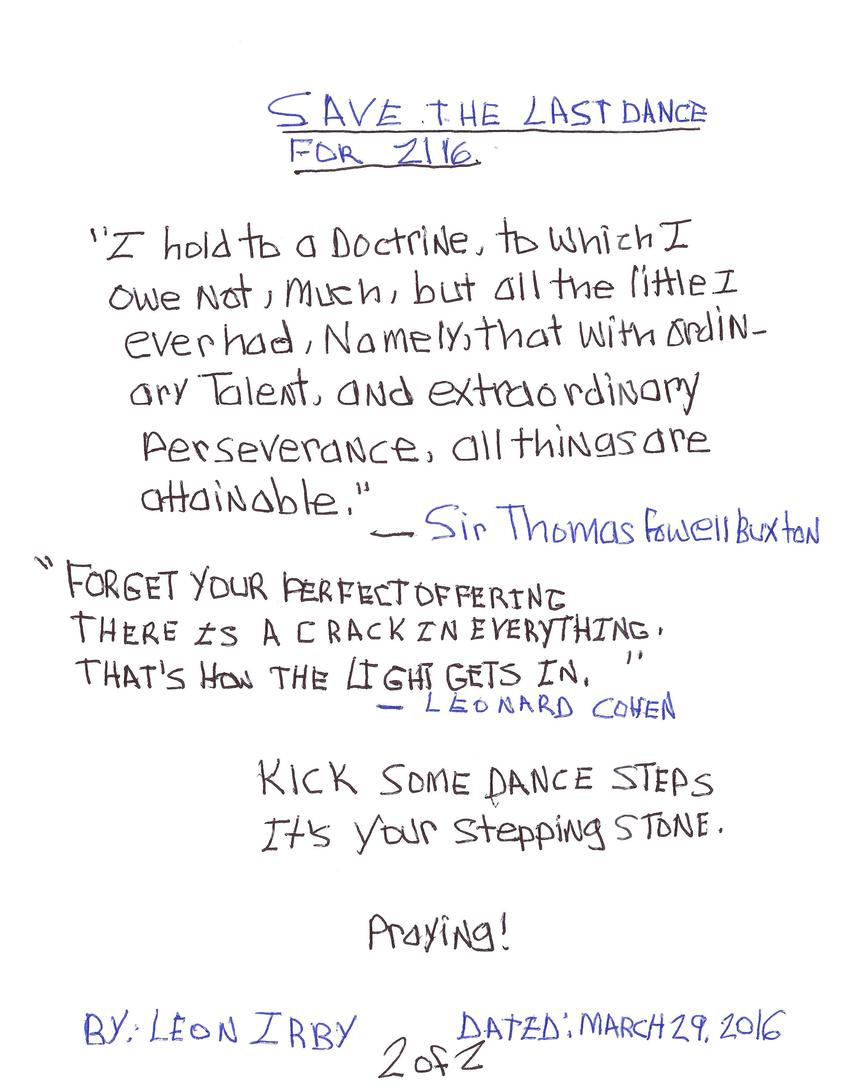 SAVE THE LAST DANCE
FOR 2116.
"I hold to a Doctrine, to which I
owe Not, Much, but all the little I
ever had, Namely, that with ordin-
ary Talent, and extraordinary
Perseverance, all things are
attainable."
— Sir Thomas Fowell Buxton
"FORGET YOUR PERFECT OFFERING
THERE IS A CRACK IN EVERYTHING.
THAT'S HOW THE LIGHT GETS IN."
— LEONARD COHEN
KICK SOME DANCE STEPS
It's your stepping STONE.
Praying!
BY: LEON IRBY DATED: MARCH 29, 2016
2 of 2